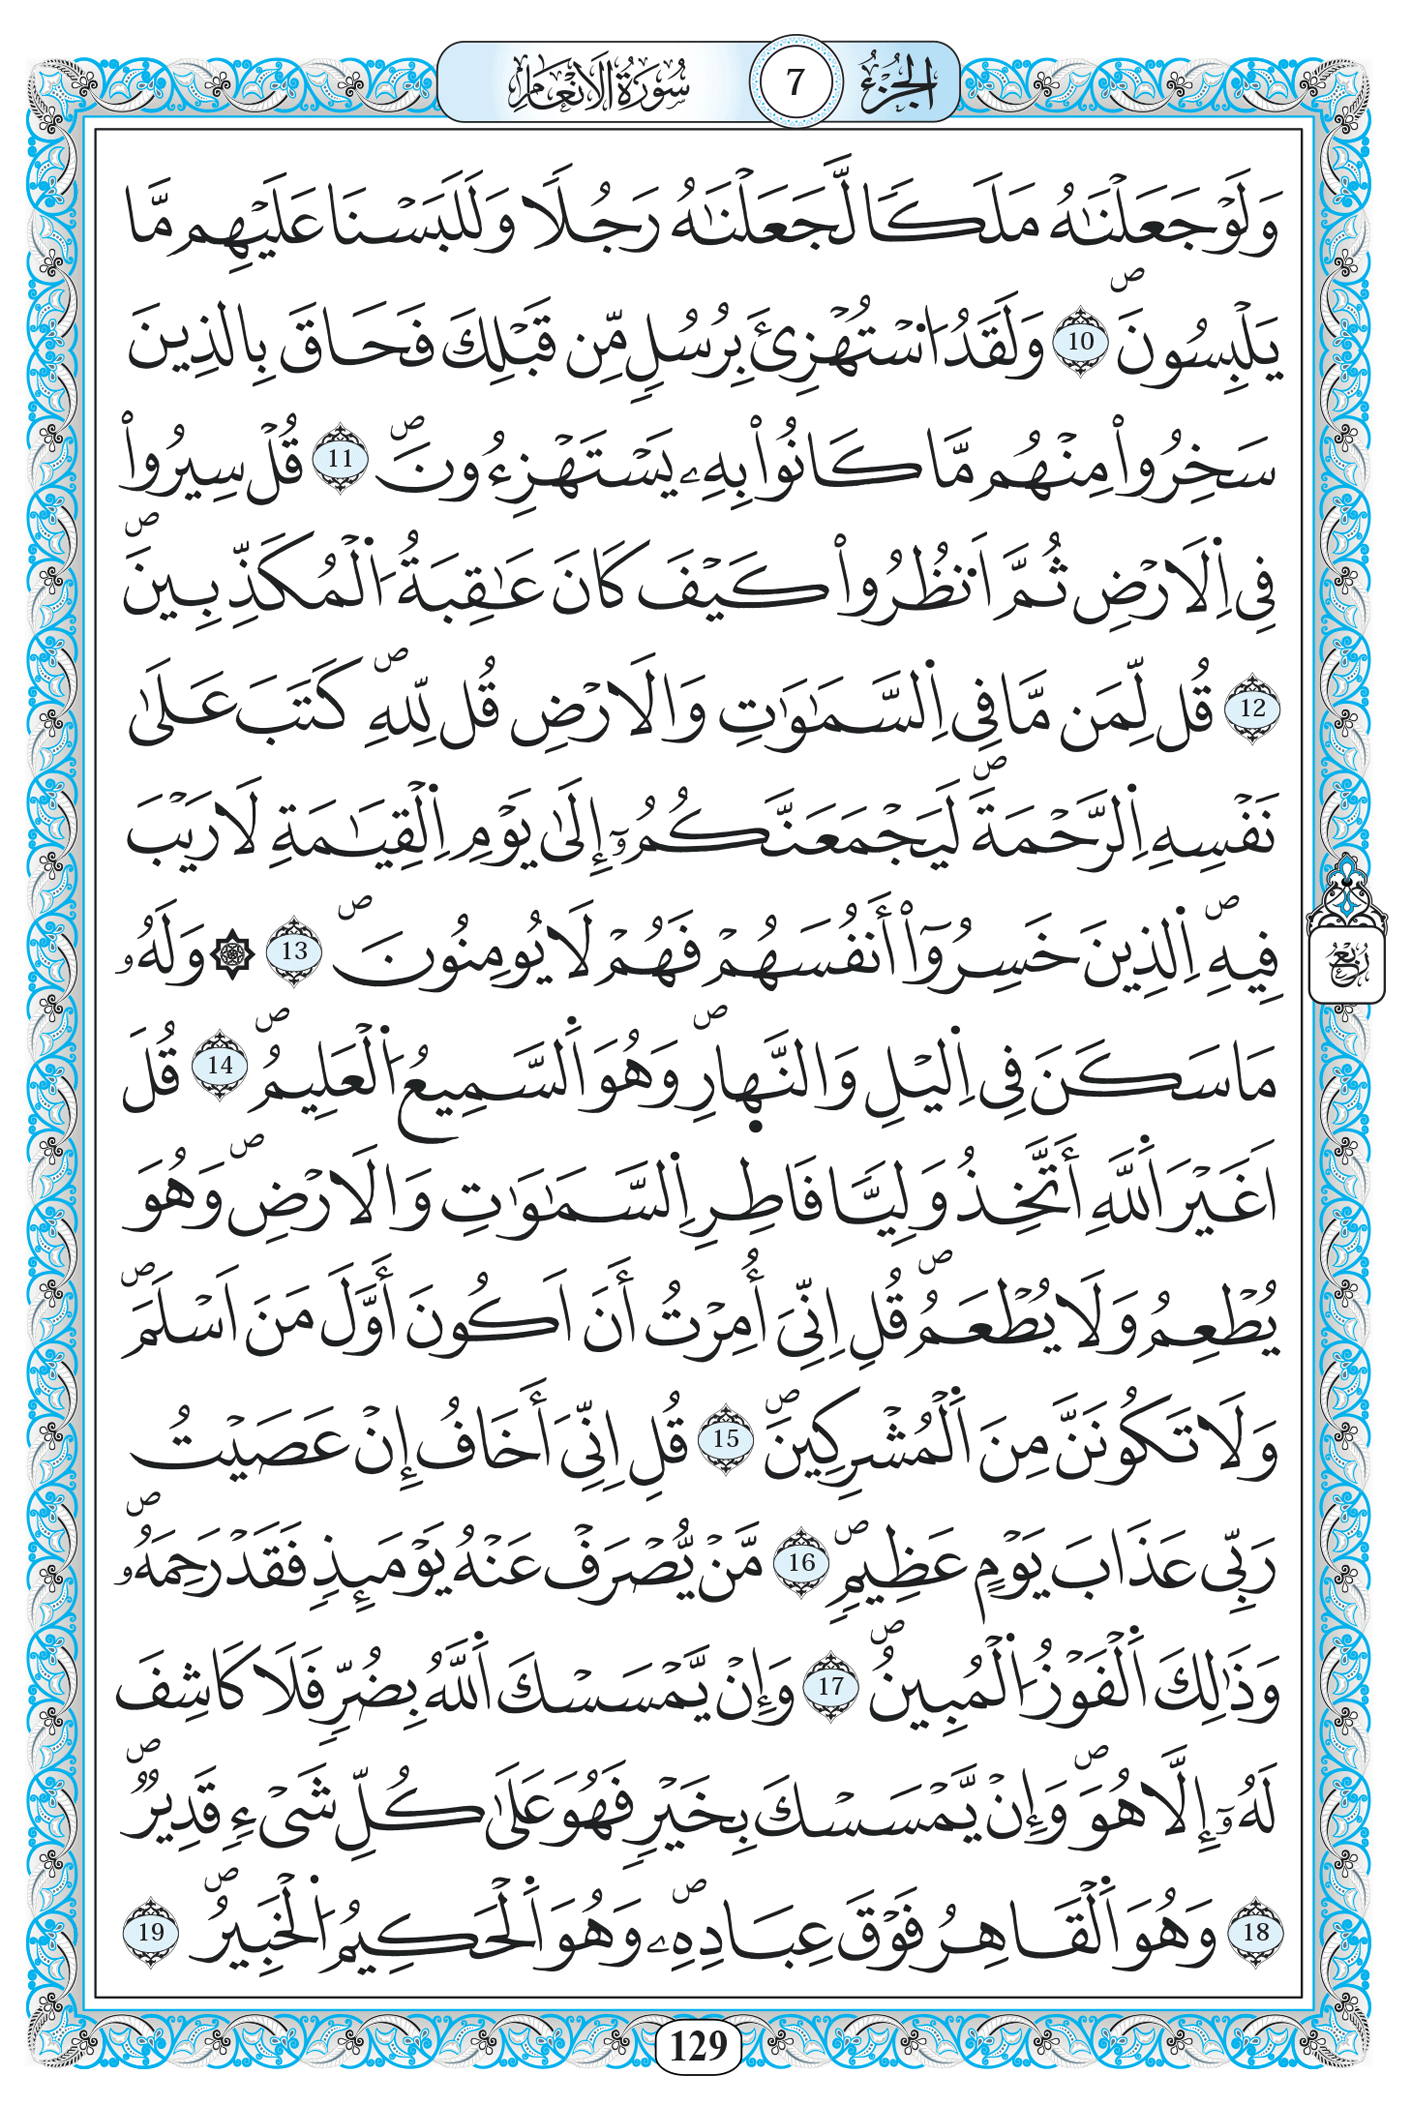 الجزء 7 سورة الانعام
وَلَوْ جَعَلْنَٰهُ مَلَكاٗ لَّجَعَلْنَٰهُ رَجُلاٗ وَلَلَبَسْنَا عَلَيْهِم مَّا
يَلْبِسُونَۖ 10 وَلَقَدُ اُ۟سْتُهْزِئَ بِرُسُلٖ مِّن قَبْلِكَ فَحَاقَ بِالذِينَ
سَخِرُواْ مِنْهُم مَّا كَانُواْ بِهِۦ يَسْتَهْزِءُونَۖ 11 قُلْ سِيرُواْ
فِے اِ۬لَارْضِ ثُمَّ اَ۟نظُرُواْ كَيْفَ كَانَ عَٰقِبَةُ اُ۬لْمُكَذِّبِينَۖ
12 قُل لِّمَن مَّا فِے اِ۬لسَّمَٰوَٰتِ وَالَارْضِ قُل لِلهِۖ كَتَبَ عَلَىٰ
نَفْسِهِ اِ۬لرَّحْمَةَۖ لَيَجْمَعَنَّكُمُۥٓ إِلَىٰ يَوْمِ اِ۬لْقِيَٰمَةِ لَا رَيْبَ
فِيهِۖ اِ۬لذِينَ خَسِرُوٓاْ أَنفُسَهُمْ فَهُمْ لَا يُومِنُونَۖ 13 ۞ وَلَهُۥ
مَا سَكَنَ فِے اِ۬ليْلِ وَالنَّه۪ارِۖ وَهُوَ اَ۬لسَّمِيعُ اُ۬لْعَلِيمُۖ 14 قُلَ
اَغَيْرَ اَ۬للَّهِ أَتَّخِذُ وَلِيّاٗ فَاطِرِ اِ۬لسَّمَٰوَٰتِ وَالَارْضِۖ وَهُوَ
يُطْعِمُ وَلَا يُطْعَمُۖ قُلِ اِنِّيَ أُمِرْتُ أَنَ اَكُونَ أَوَّلَ مَنَ اَسْلَمَۖ
وَلَا تَكُونَنَّ مِنَ اَ۬لْمُشْرِكِينَۖ 15 قُلِ اِنِّيَ أَخَافُ إِنْ عَصَيْتُ
رَبِّے عَذَابَ يَوْمٍ عَظِيمٖۖ 16 مَّنْ يُّصْرَفْ عَنْهُ يَوْمَئِذٖ فَقَدْ رَحِمَهُۥۖ
وَذَٰلِكَ اَ۬لْفَوْزُ اُ۬لْمُبِينُۖ 17 وَإِنْ يَّمْسَسْكَ اَ۬للَّهُ بِضُرّٖ فَلَا كَاشِفَ
لَهُۥٓ إِلَّا هُوَۖ وَإِنْ يَّمْسَسْكَ بِخَيْرٖ فَهُوَ عَلَىٰ كُلِّ شَےْءٖ قَدِيرٞۖ
18 وَهُوَ اَ۬لْقَاهِرُ فَوْقَ عِبَادِهِۦۖ وَهُوَ اَ۬لْحَكِيمُ اُ۬لْخَبِيرُۖ 19
ربع
129